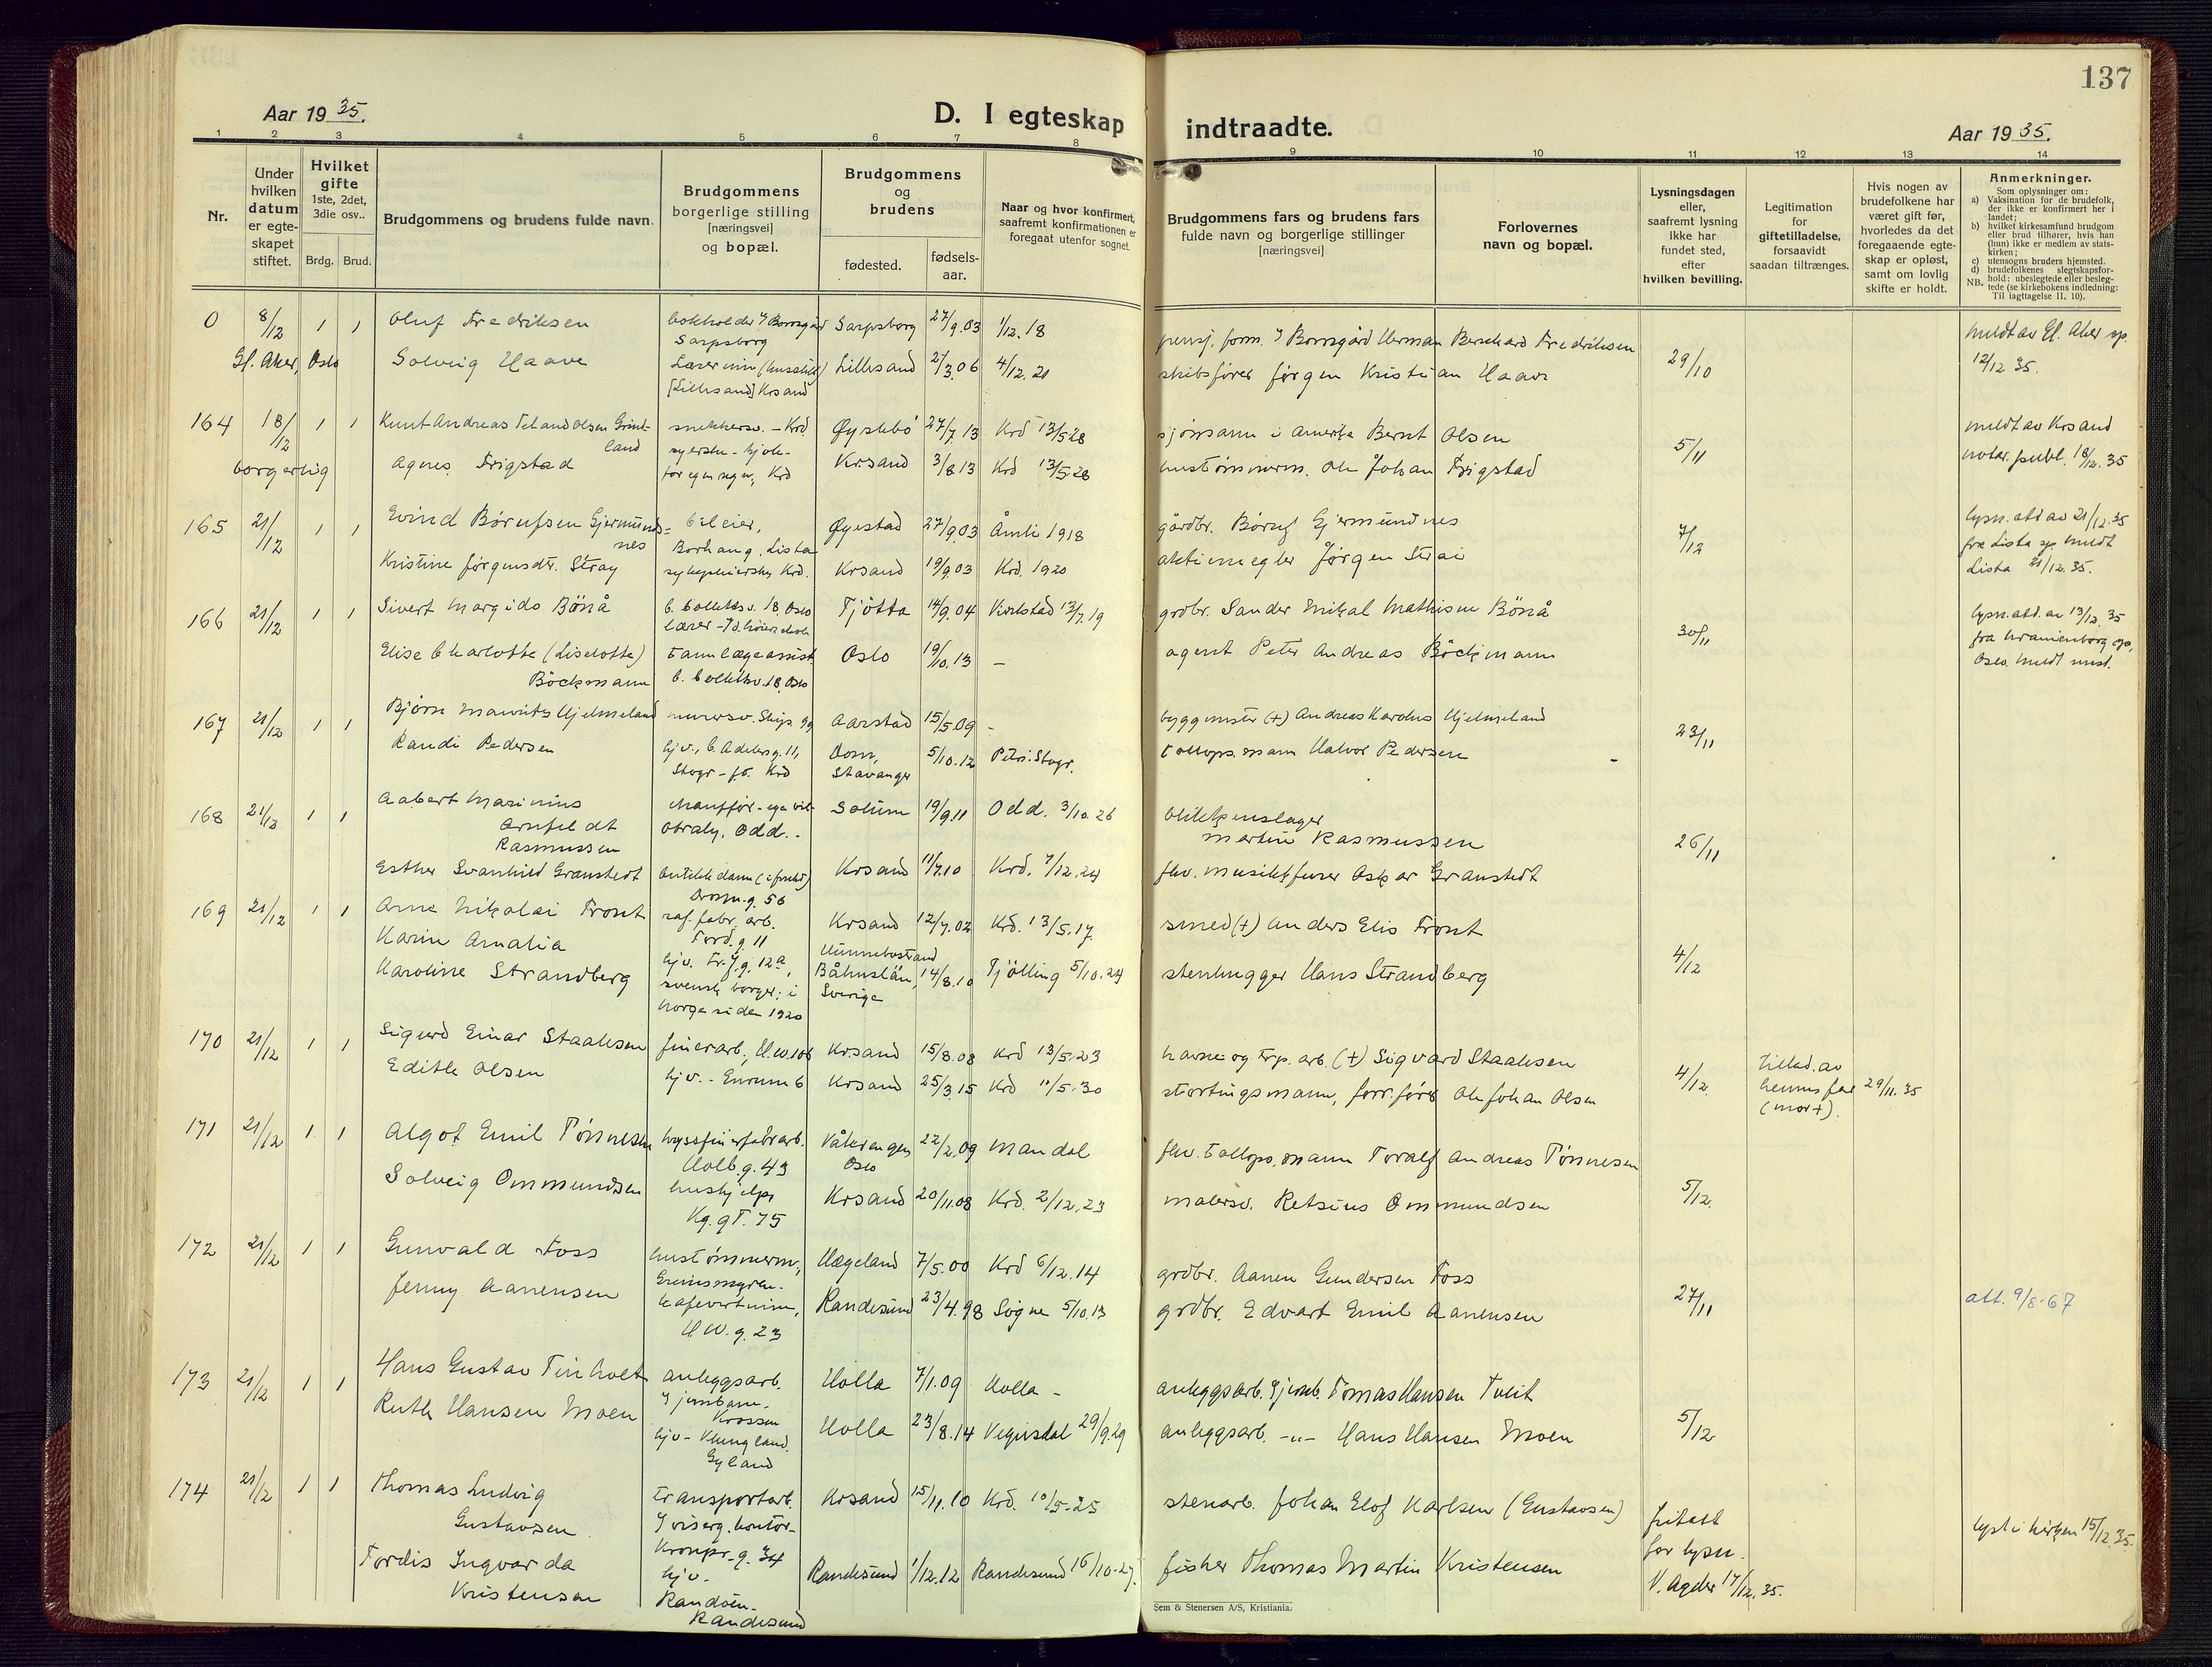 137
Aar 19 35.
D. I egteskap indtraadte.
Aar 19 35.
1 2 3 4 5 6 7 8 9 10 11 12 13 14
Nr.
Under hvilken datum er egte- skapet stiftet.
Hvilket gifte 1ste, 2det, 3die osv..
Brdg. Brud.
Brudgommens og brudens fulde navn.
Brudgommens borgerlige stilling [næringsvei] og bopæl.
Brudgommens og brudens
fødested.
fødsels- aar.
Naar og hvor konfirmert, saafremt konfirmationen er foregaat utenfor sognet.
Brudgommens fars og brudens fars fulde navn og borgerlige stillinger [næringsvei]
Forlovernes navn og bopæl.
Lysningsdagen eller, saafremt lysning ikke har fundet sted, efter hvilken bevilling.
Legitimation for giftetilladelse, forsaavidt saadan tiltrænges.
Hvis nogen av brudefolkene har været gift før, hvorledes da det foregaaende egte- skap er opløst, samt om lovlig skifte er holdt.
Anmerkninger.
Som oplysninger om:
a) Vaksination for de brudefolk, der ikke er konfirmert her i landet;
b) hvilket kirkesamfund brudgom eller brud tilhører, hvis han (hun) ikke er medlem av stats- kirken;
c) utensogns bruders hjemsted.
d) brudefolkenes slegtskapsfor- hold: ubeslegtede eller besleg-
NB. tede (se kirkebokens indledning: Til iagttagelse II. 10).
0 8/12 1 1 Oluf Fredriksen bokholder Borregård Sarpsborg Sarpsborg 27/9.03 1/12.18 pensj. form. Borregård Herman Bernhard Fredriksen meldt av Gl. Aker sp.
Gl. Aker, Oslo Solveig Haave Lærerinne [Lillesand] Krsand Lillesand 2/3.06 4/12.21 skibsfører Jørgen Kristian Haave 29/10 12/12 35.
164 18/12 1 1 Knut Andreas Teland Olsen Grindland snekkersv. - Krd. Øyslebö 27/7 13 Krd 13/5 28 sjömann i Amerika Bernt Olsen 5/11 meldt av Krsand
borgerlig Agnes Frigstad syerske - kjole- for egen regn., Krd Krsand 3/8 13 Krd 13/5.28 hustömmerm. Ole Johan Frigstad notar. publ. 18/12.35
165 21/12 1 1 Eivind Börufsen Gjermundnes bileier, Borhaug, Lista Øyestad 27/9.03 Åmli 1918 gårdbr. Böruf Gjermundnes 7/12 lysn. att av 21/12.35 fra Lista sp. meldt
Kristine Jörgensdtr. Stray sykepleierske Krd. Krsand 19/9.03 Krd. 1920 aktiemegler Jörgen Strai Lista 21/12.35.
166 21/12 1 1 Sivert Margido Bönå C. Collettsv. 18, Oslo lærer Tjötta 14/9.04 13/7.19 grdbr. Sander Mikal Mathisen Bönå 30/11 lysn.att. av 13/12.35
Elise Charlotte (Liselotte) Böckmann tannlægeassist C. Collettsv. 18, Oslo Oslo 19/10.13 - agent Peter Andreas Böckmann fra Uranienborg sp, Oslo. meldt
167 21/12 1 1 Bjørn Mauritz Hjelmeland murersv. Skips g9 Aarstad 15/5.09 - byggmester (+) Andreas Karolus Hjelmeland 23/11
Randi Pedersen hjv., C. Adelersg. 11, Stvgr - fö. Krd Dom, Stavanger 5/10.12 Petri. Stvgr. tollops.mann Halvor Pedersen
168 21/12 1 1 Aabert Marinius Arnfeldt Rasmussen chaufför - Odd. Solum 19/9.11 Odd. 3/10.26 blikkenslager Martin Rasmussen 26/11
Esther Svanhild Granstedt butikkdame Dronn.g. 56 Krsand 11/7.10 Krd. 7/12.24 fhv. musikkfurer Oskar Granstedt
169 21/12 1 1 Arne Nikolai Front raf. fabr. arb. Tord.g 11 Krsand 12/7.02 Krd. 13/5.17. smed (+) Anders Elis Front 4/12
Karin Amalia Karoline Strandberg hjv. Fr.J.g. 12a, svensk borger; i Norge siden 1920 Hunnebostrand Båhuslän, Sverige 14/8.10 Tjölling 5/10.24 stenhugger Hans Strandberg
170 21/12 1 1 Sigurd Einar Staalesen finerarb., H.W.106 Krsand 15/8.08 Krd 13/5.23 havne og trp. arb. (+) Sigvard Staalesen 4/12 tillad. av hennes far (mor +). 29/11.35
Edith Olsen hjv. - Enrum 6 Krsand 25/3.15 Krd 11/5.30 stortingsmann, forr.förer Ole Johan Olsen
171 21/12 1 1 Algot Emil Tönnesen Holb.g. 43 Vålerengen Oslo 22/2.09 Mandal fhv. tollops.mann Toralf Andreas Tönnesen 5/12.
Solveig Ommundsen hushjelp Kg.gt. 75 Krsand 20/11.08 Krd. 2/12.23 malersv. Retsius Ommundsen
172 21/12 1 1 Gunvald Foss hustömmerm., Grimsmyren. Hægeland 7/5.00 Krd 6/12.14 grdbr. Aanen Gundersen Foss 27/11 att. 9/8-67
Jenny Aanensen kafevertinne, H.W.g. 23 Randesund 23/4.98 Søgne 5/10.13 grdbr. Edvart Emil Aanensen
173 21/12 1 1 Hans Gustav Tinholt anleggsarb. jernbane. Krossen Holla 7/1.09 Holla - anleggsarb. jernb. Tomas Hansen Tveit 5/12
Ruth Hansen Moen hjv - Klungland. Gyland Holla 23/8.14 Vegusdal 29/9.29 anleggsarb. -"- Hans Hansen Moen
174 21/12 1 1 Thomas Ludvig Gustavsen transportarb. viserg. kontor - Kronpr.g. 34 Krsand 15/11.10 Krd. 10/5.25 stenarb. Johan Elof Karlsen (Gustavsen) fritatt for lysn. V. Agder 17/12.35. lyst i kirken 15/12.35.
Tordis Ingvarda Kristensen hjv. - Randöen - Randesund Randesund 1/12.12 Randesund 16/10.27. fisker Thomas Martin Kristensen
Sem & Stenersen A/S, Kristiania.